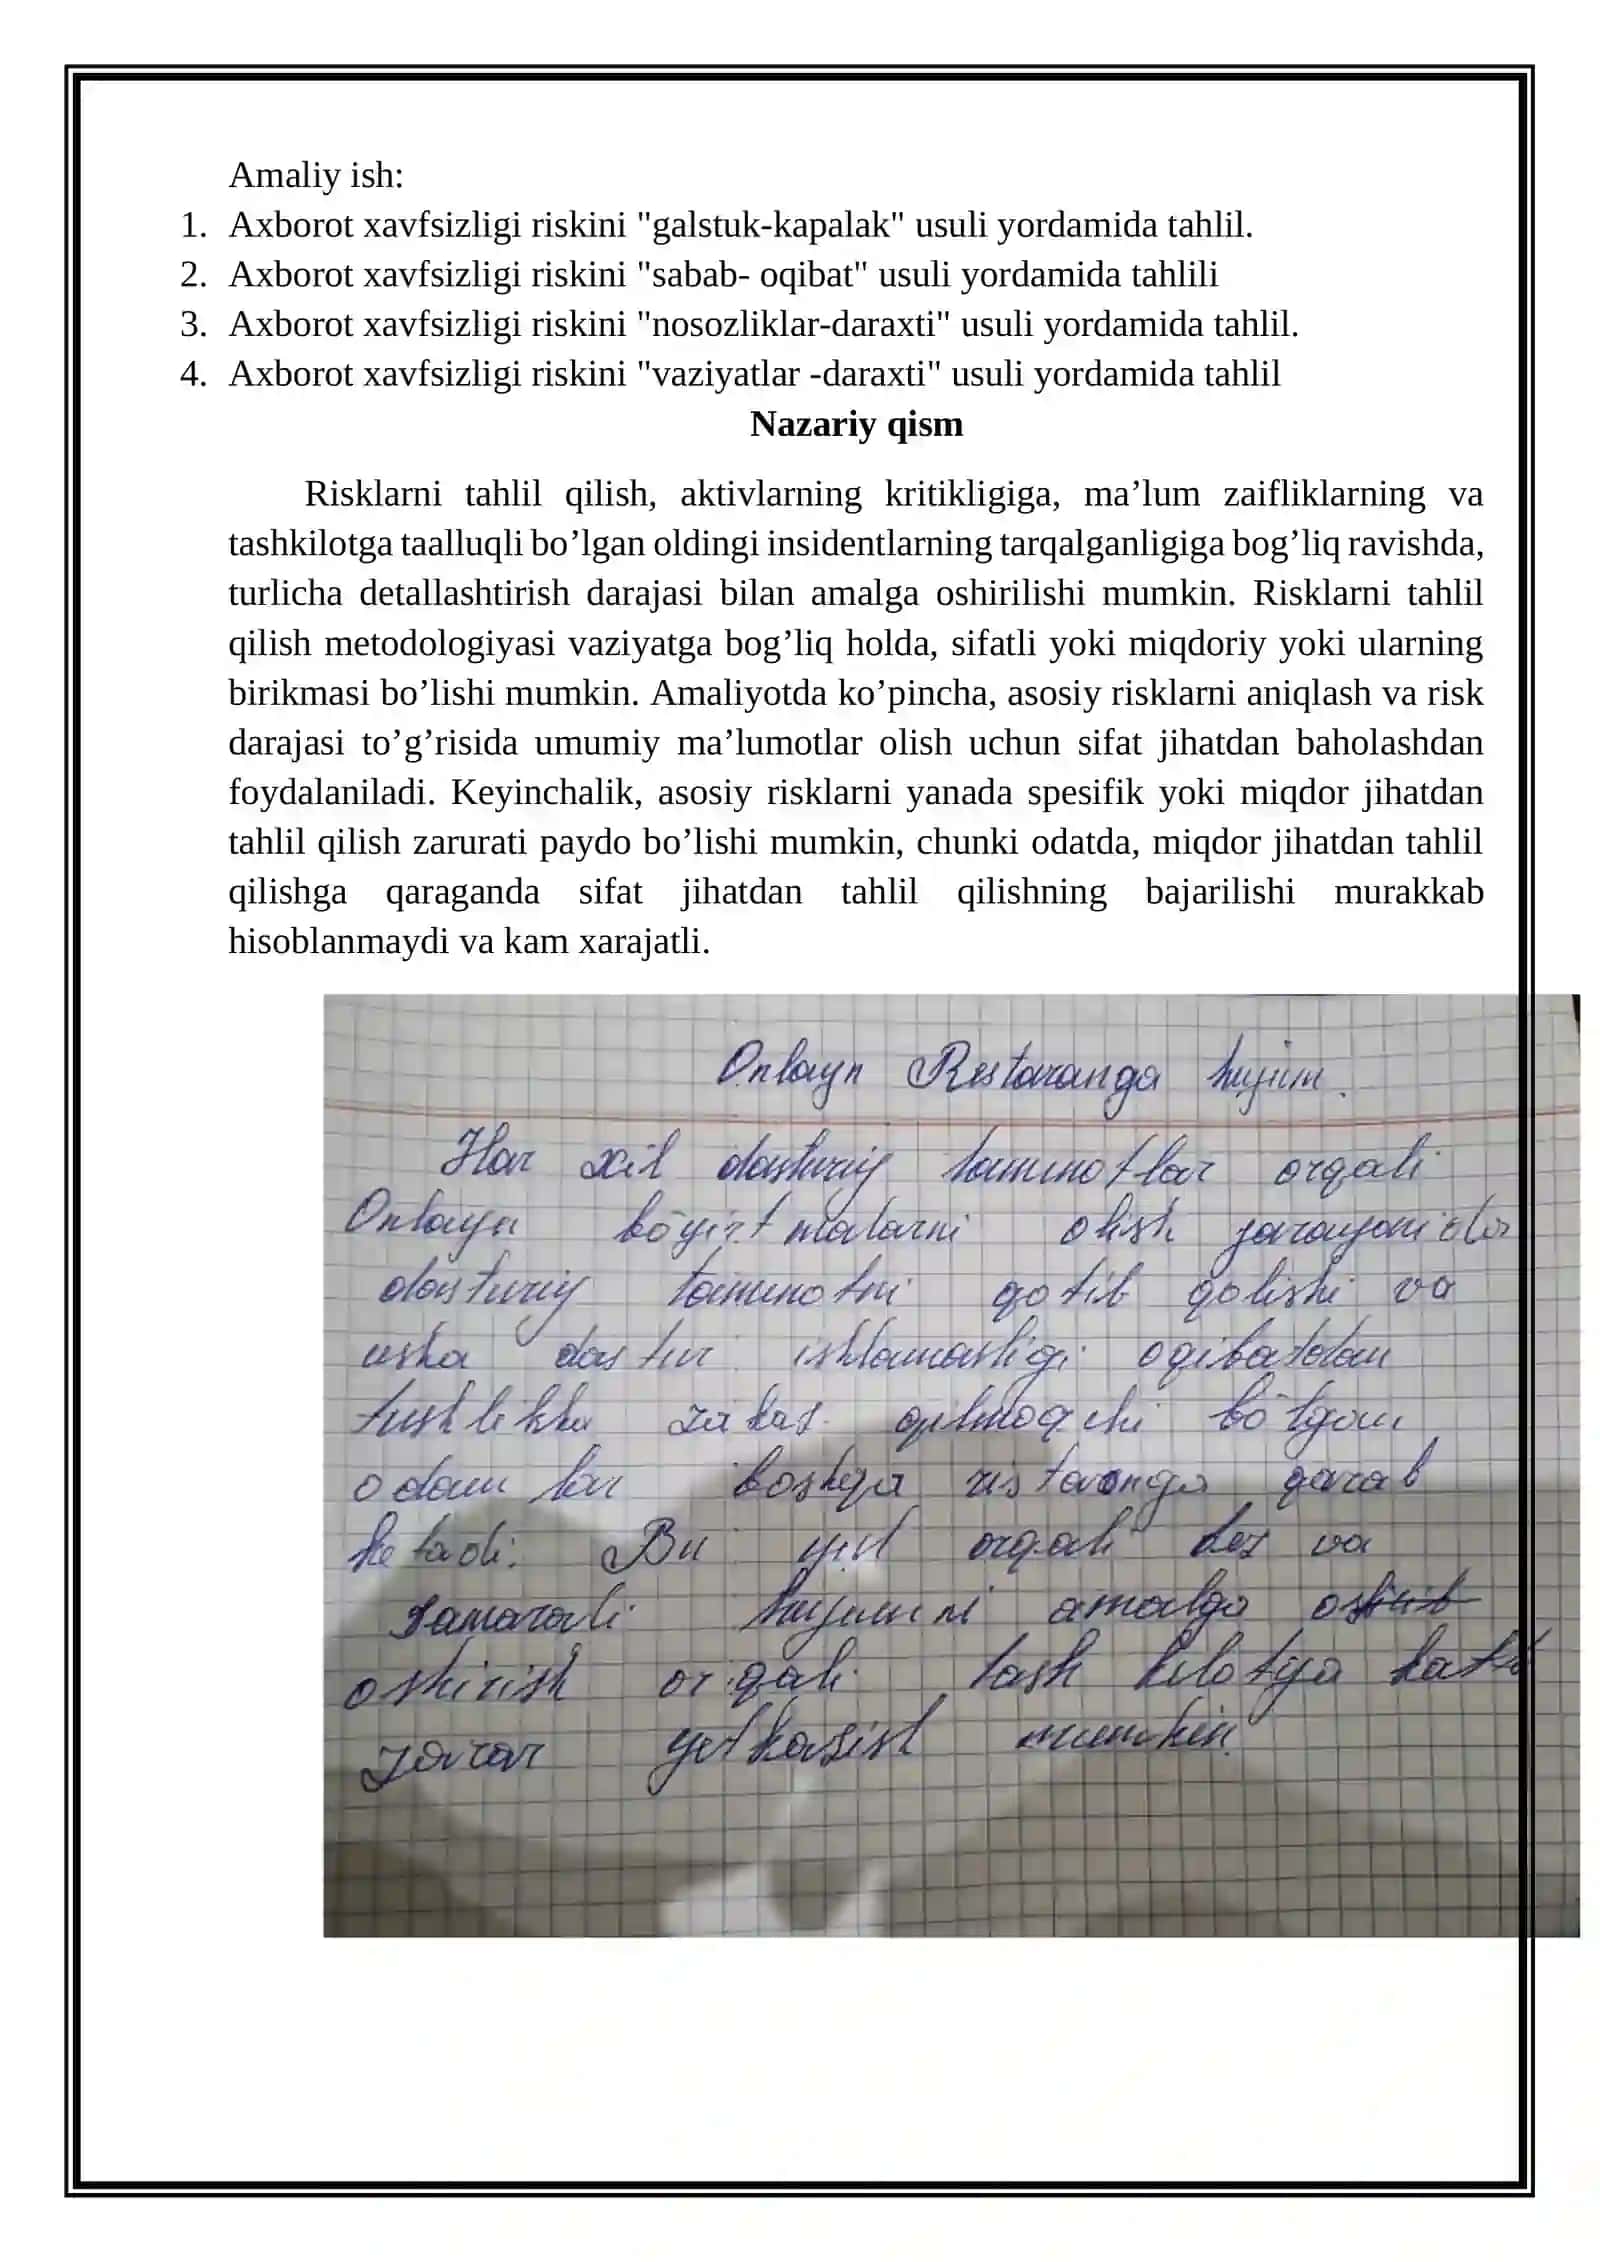 Amaliy ish:
1. Axborot xavfsizligi riskini "galstuk-kapalak" usuli yordamida tahlil.
2. Axborot xavfsizligi riskini "sabab- oqibat" usuli yordamida tahlili
3. Axborot xavfsizligi riskini "nosozliklar-daraxti" usuli yordamida tahlil.
4. Axborot xavfsizligi riskini "vaziyatlar -daraxti" usuli yordamida tahlil
Nazariy qism
Risklarni tahlil qilish, aktivlarning kritikligiga, ma’lum zaifliklarning va
tashkilotga taalluqli bo’lgan oldingi insidentlarning tarqalganligiga bog’liq ravishda,
turlicha detallashtirish darajasi bilan amalga oshirilishi mumkin. Risklarni tahlil
qilish metodologiyasi vaziyatga bog’liq holda, sifatli yoki miqdoriy yoki ularning
birikmasi bo’lishi mumkin. Amaliyotda ko’pincha, asosiy risklarni aniqlash va risk
darajasi to’g’risida umumiy ma’lumotlar olish uchun sifat jihatdan baholashdan
foydalaniladi. Keyinchalik, asosiy risklarni yanada spesifik yoki miqdor jihatdan
tahlil qilish zarurati paydo bo’lishi mumkin, chunki odatda, miqdor jihatdan tahlil
qilishga qaraganda sifat jihatdan tahlil qilishning bajarilishi murakkab
hisoblanmaydi va kam xarajatli.
Onlayn Restaranga hujum.
Har xil dasturiy taminotlar orqali
Onlayn böyirtmalarni olish jarayonida
dasturiy taminotni qotib qolishi va
usha dastur ishlamasligi oqibatdan
tushlikka zakas qilmoqchi bölgan
odamlar boshqa ristaranga qarab
ketadi. Bu yol orqali tez va
samarali hujumni amalga oshirib
oshirish orqali tashkilotga katta
zarar yetkazish mumkin.